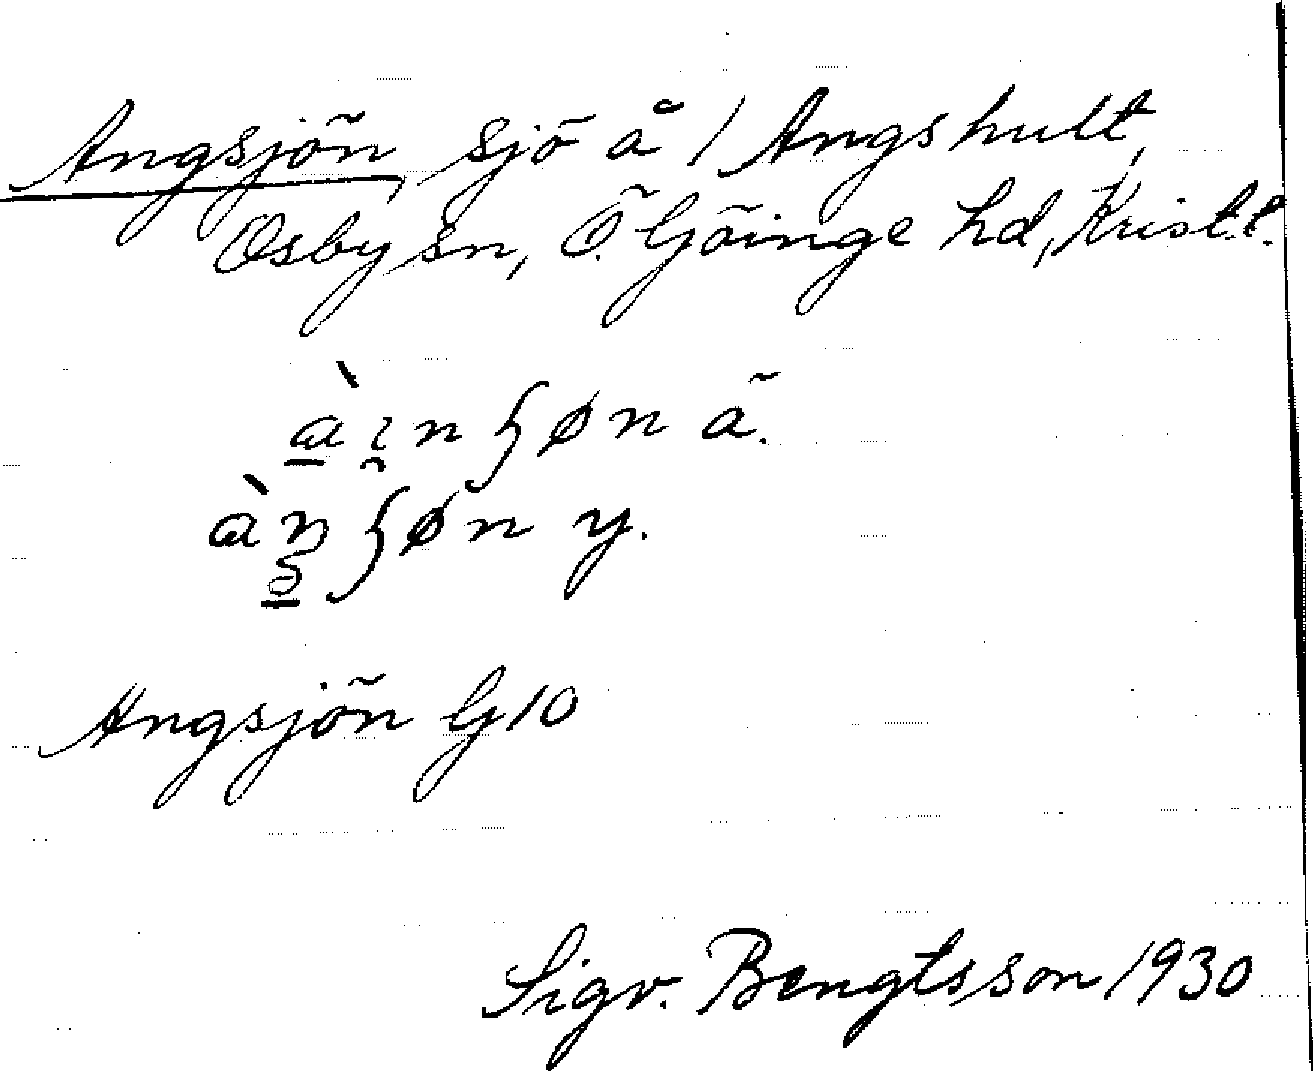 Angsjön, sjö å 1 Angshult,
Osby sn, Ö. Göinge hd, Krist. l.
ä.
y.
Angsjön G10
Sigv. Bengtsson 1930